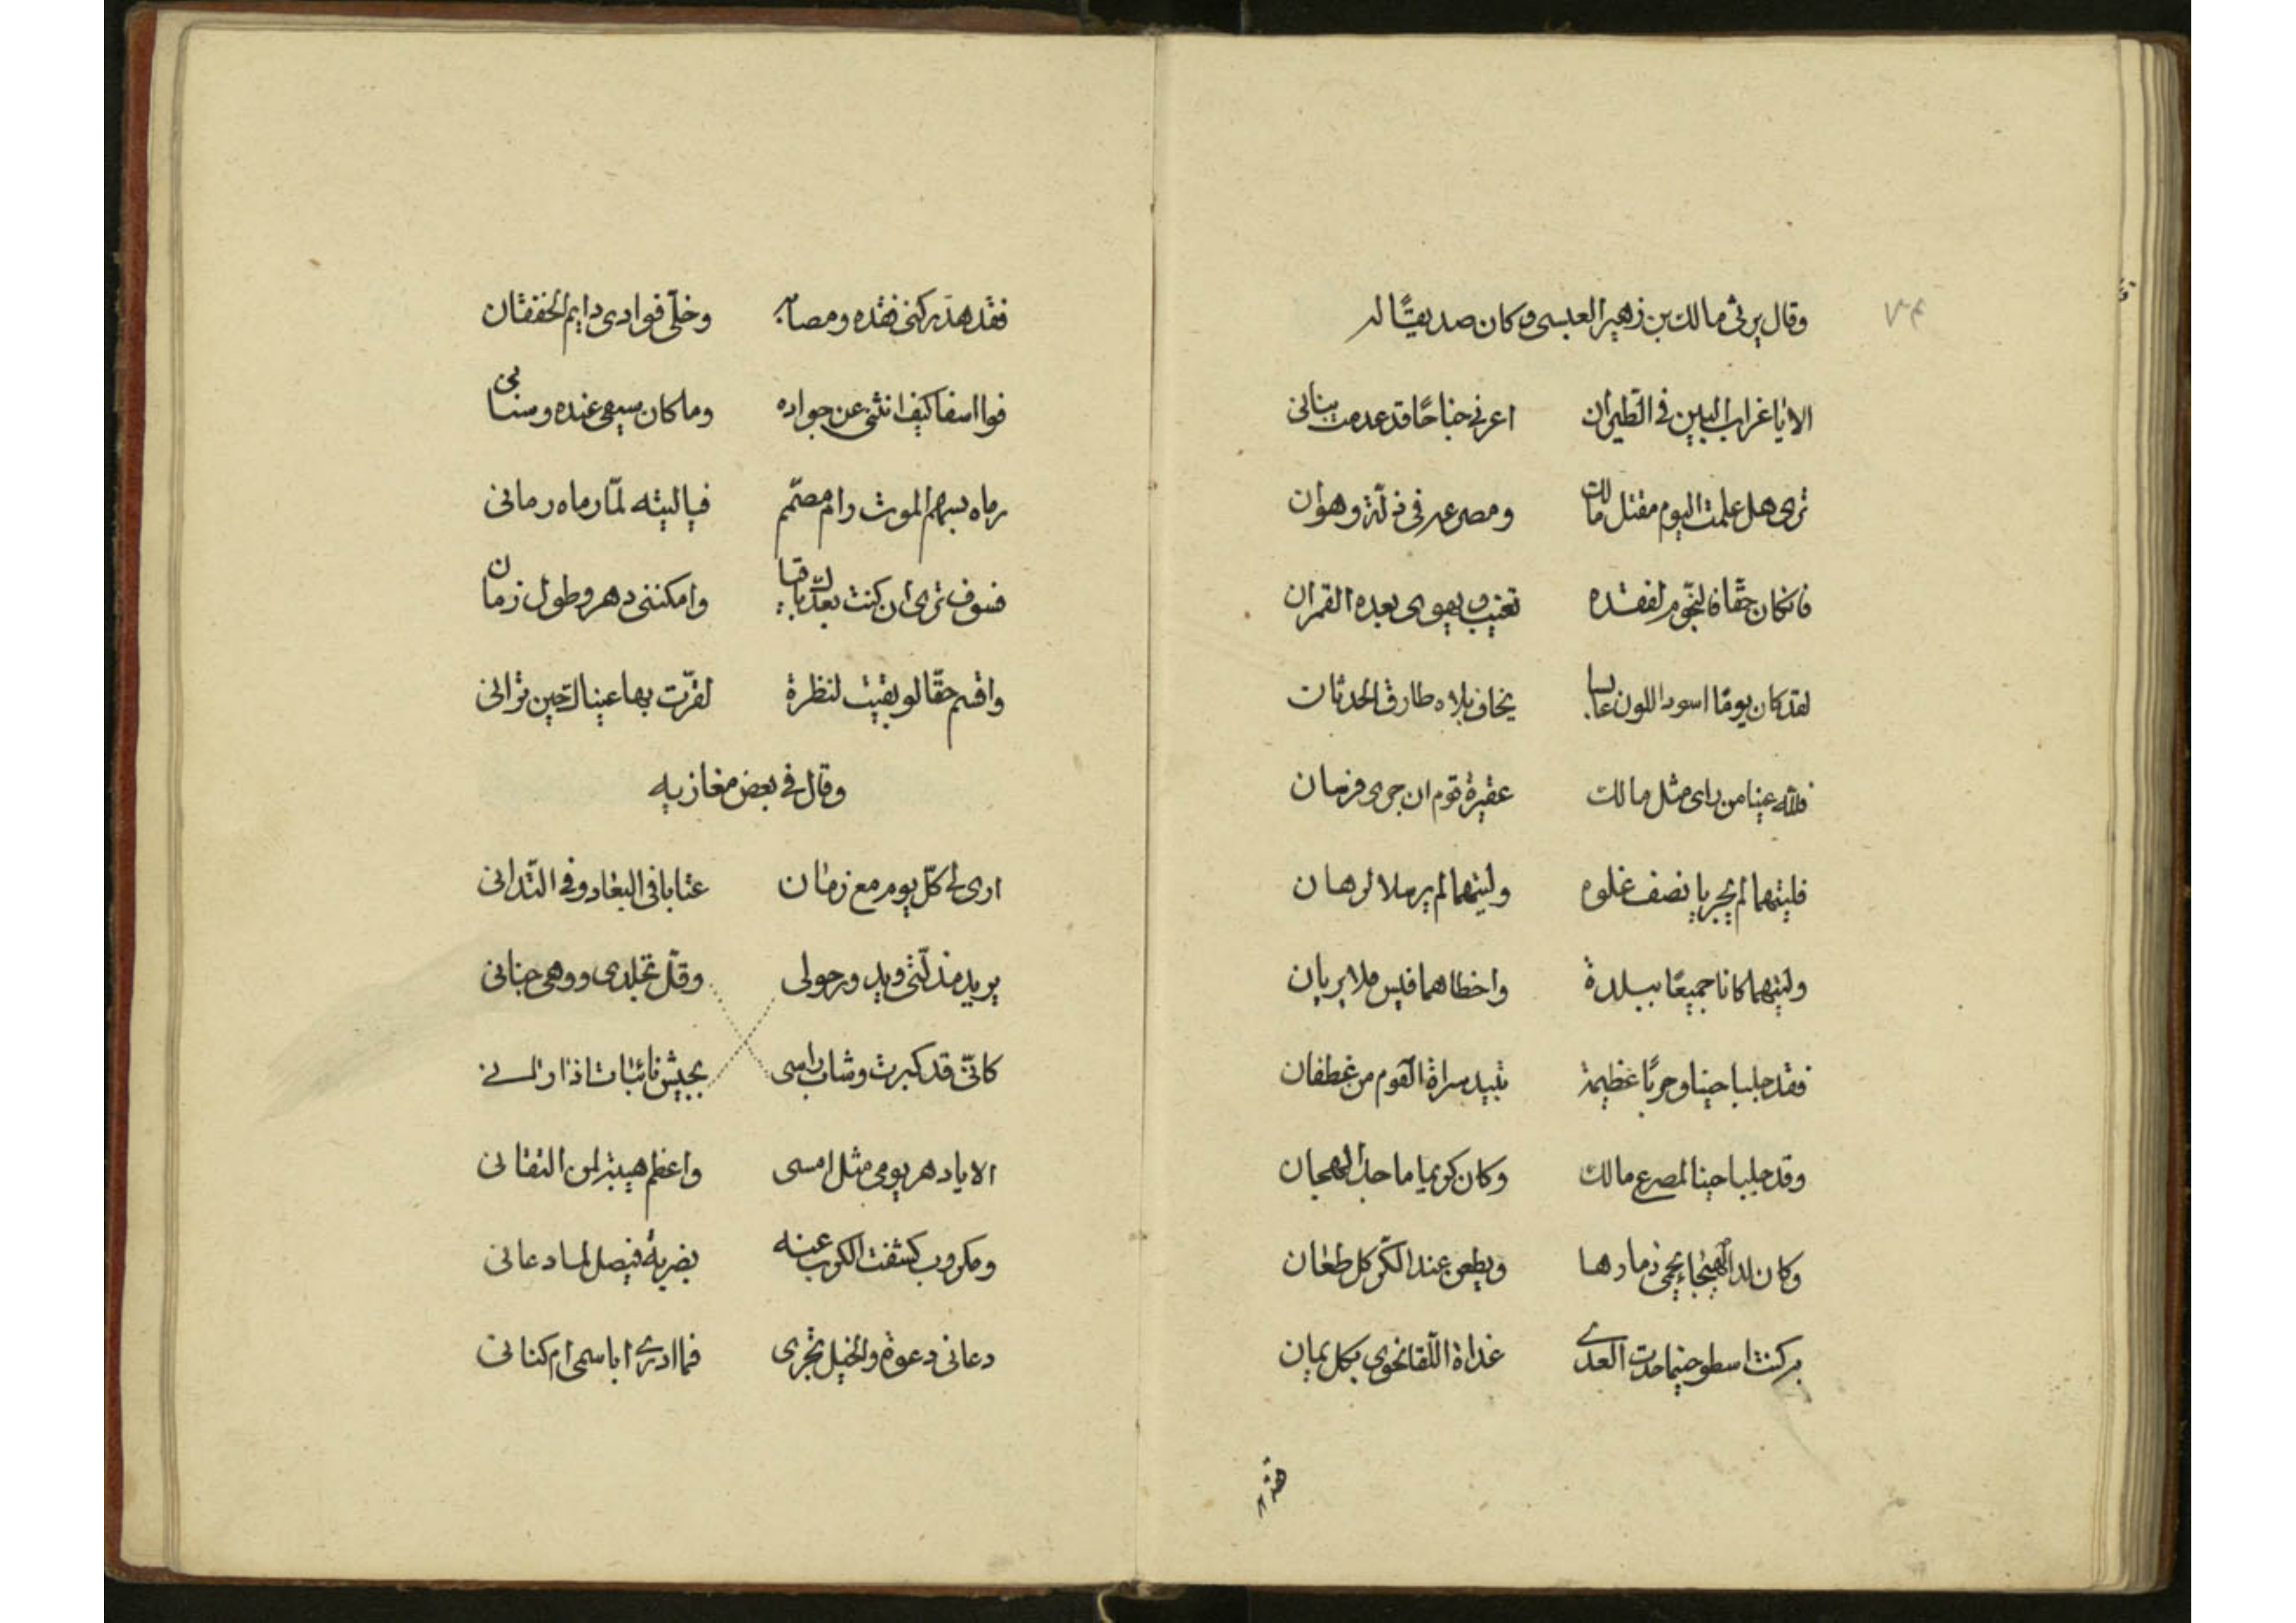 وقال يرثى مالك بن زهير العبسى وكان صديقًا له
الا يا غراب البين فى الطيران اعرنى جناحًا قد عدمت بنانى
ترى هل علمت اليوم مقتل مالك ومصرعه فى ذلّة وهوان
فانكان حقًا فالنجوم لفقده تغيب ويهوى بعده القمران
لقد كان يومًا اسود اللون عابسا يخاف بلاه طارق الحدثان
فلله عينا من راى مثل مالك عقيرة قوم ان جرى فرسان
فليتهما لم يجريا نصف غلوه وليتهما لم يرسلا لرهان
وليتهما كانا جميعًا ببلدة واخطاهما قيس فلا يريان
فقد جلبا حينا وحربًا عظيمة تبيد سراة القوم من غطفان
وقد جلبا حينا لمصرع مالك وكان كريما ماجدا لهجان
وكان لدا الهيجاء يحمى ذمارها ويطعن عند الكرّ كل طعان
به كنت اسطو حينما جدت العدى غداة اللقا نحوى بكل يمان
فقد
٧٣
فقد هدّ ركنى فقده ومصابه وخلّى فوادى دايم الخفقان
فوا اسفا كيف انثنى عن جواده وما كان سيفى عنده وسنانى
رماه بسهم الموت رام مصمّم فيا ليته لمّا رماه رمانى
فسوف ترى ان كنت بعدك باقيا وامكننى دهر وطول زمان
واقسم حقّا لو بقيت لنظرة لقرّت بها عيناك حين ترانى
وقال فى بعض مغازيه
ارى لى كلّ يوم مع زمان عتابا فى البعاد وفى التدانى
يريد مذلّتى ويدور حولى وقلّ تجلدى ووهى جنانى
كانّى قد كبرت وشاب راسى بجيش نائبات اذا رانى
الا يا دهر يومى مثل امسى واعظم هيبة لمن التقانى
ومكروب كشفت الكرب عنه بضربة فيصل لما دعانى
دعانى دعوة والخيل تجرى فما ادرى اباسمى ام كنانى